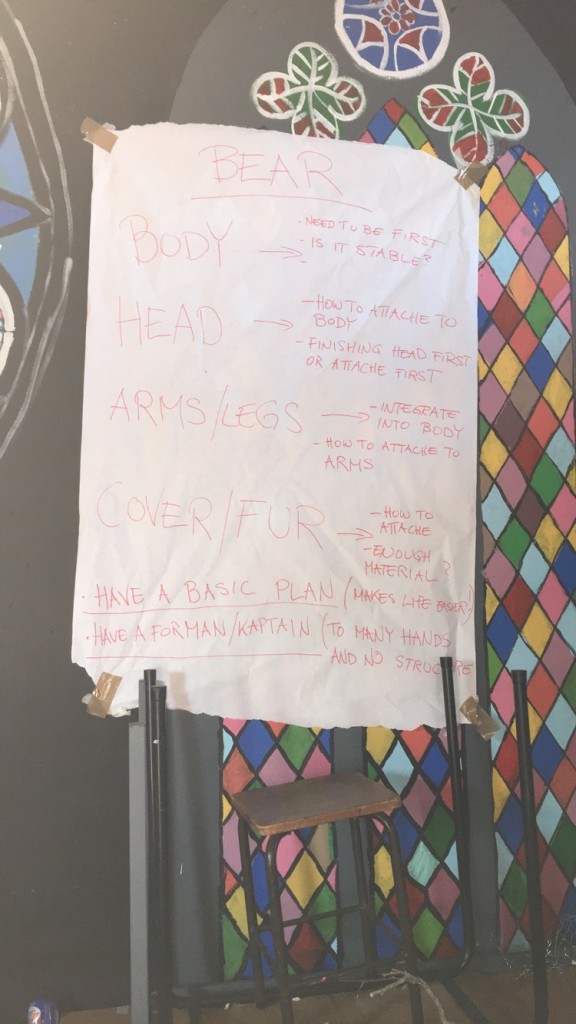 BEAR
BODY → · NEED TO BE FIRST
- IS IT STABLE?
-
HEAD → - HOW TO ATTACHE TO
BODY
- FINISHING HEAD FIRST
OR ATTACHE FIRST
ARMS/LEGS → - INTEGRATE
INTO BODY
- HOW TO ATTACHE TO
ARMS
COVER/FUR → - HOW TO
ATTACHE
- ENOUGH
MATERIAL?
· HAVE A BASIC PLAN (MAKES LIFE EASIER)
· HAVE A FORMAN/KAPTAIN (TO MANY HANDS
AND NO STRUCTURE